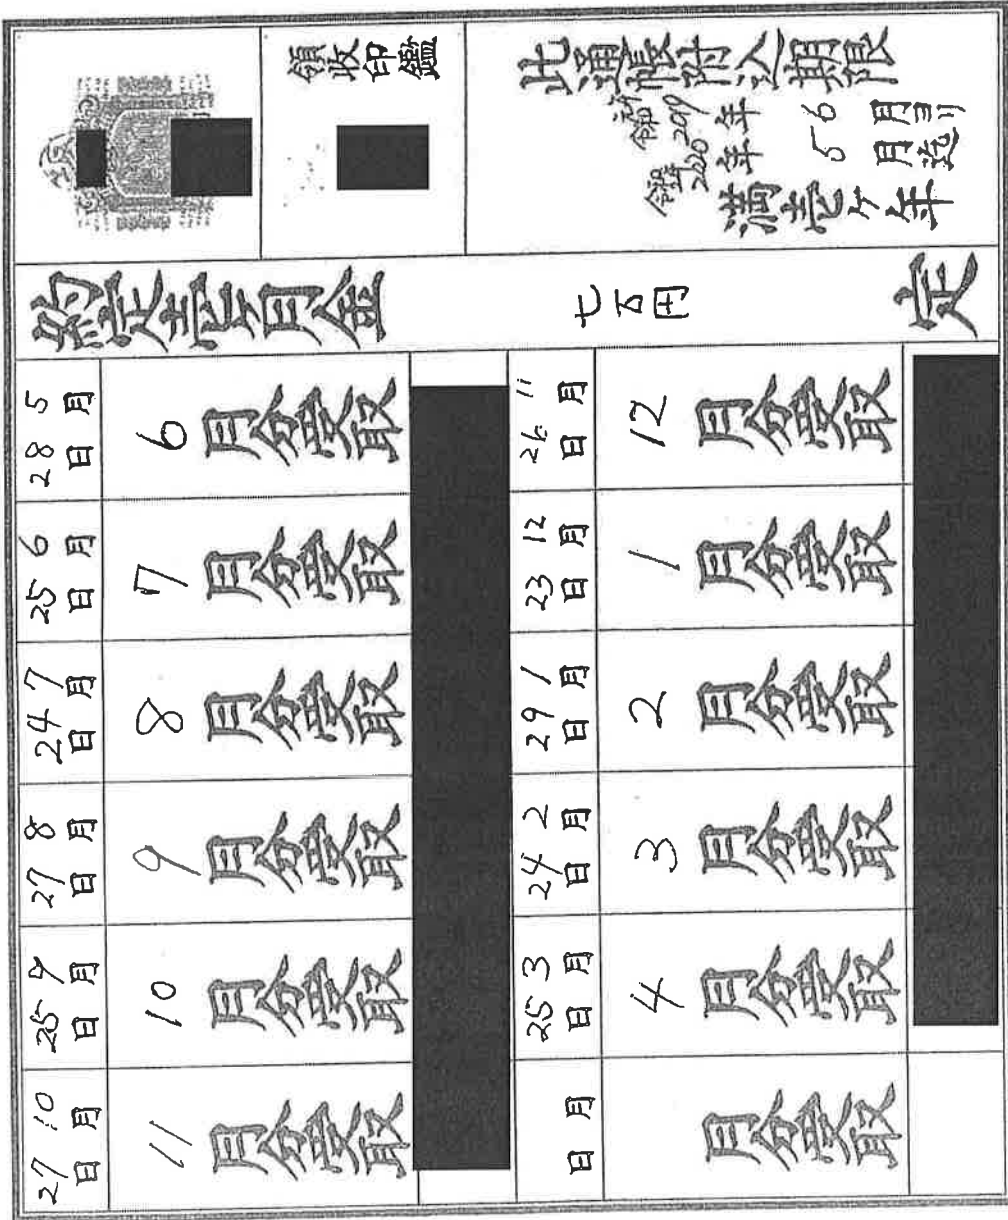 此通帳附込期限
2019年 6月ヨリ
令和 2020年 5月迄
満壱ヶ年
領収印鑑
約定壱ヶ月金 七万円 定
5月28日 6月分受取
6月25日 7月分受取
7月24日 8月分受取
8月27日 9月分受取
9月25日 10月分受取
10月27日 11月分受取
11月26日 12月分受取
12月23日 1月分受取
1月29日 2月分受取
2月24日 3月分受取
3月25日 4月分受取
月 日 月分受取